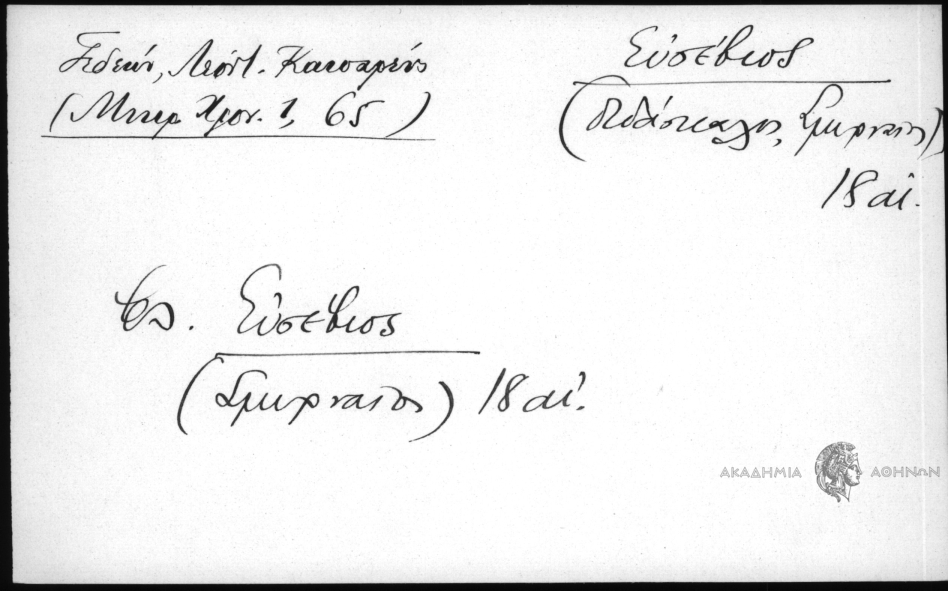 Γεδεών, Λεόντ. Καισαρεύς
(Μικρ. Χρον. 1, 65)
Εὐσέβιος
(διδάσκαλος, Σμυρναῖος)
18 αἰ.
βλ. Εὐσέβιος
(Σμυρναῖος) 18 αἰ.
ΑΚΑΔΗΜΙΑ ΑΘΗΝΩΝ